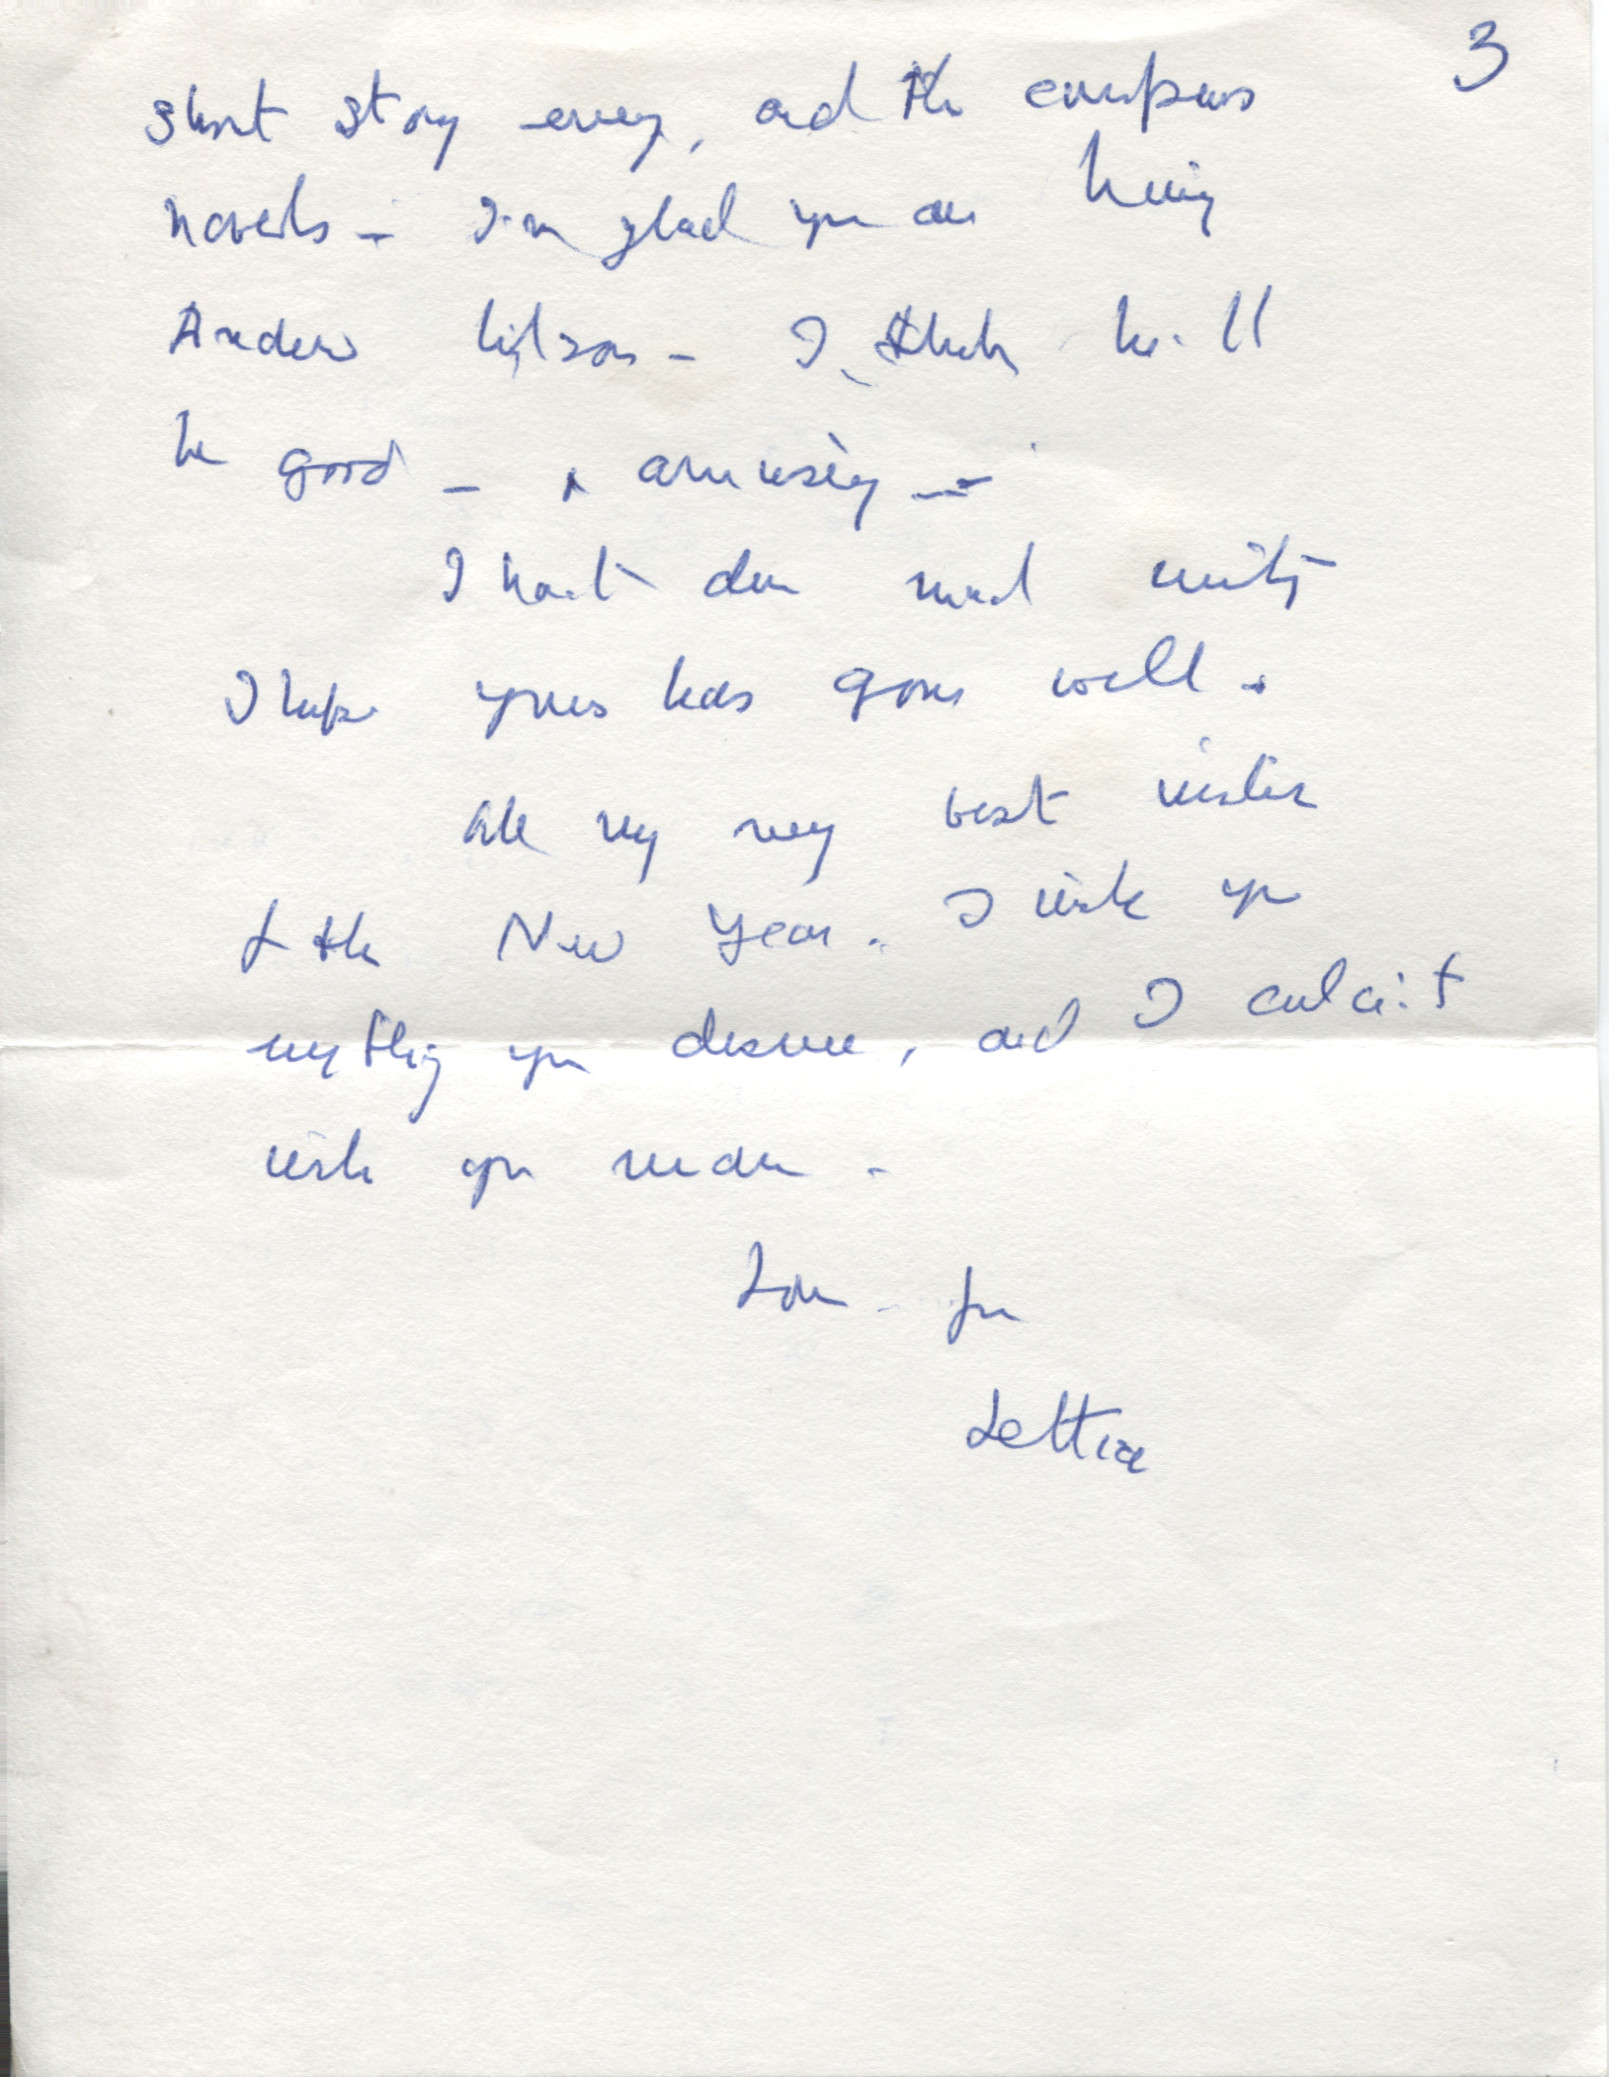 3
short story envoy, and the
novels – I'm glad you are having
Andrew Wilson – I think he'll
be good – & amusing –
I haven't done much writing
I hope yours has gone well.
All my very best wishes
for the New Year. I wish you
everything you deserve, and I couldn't
wish you more –
Love – from
Lettice